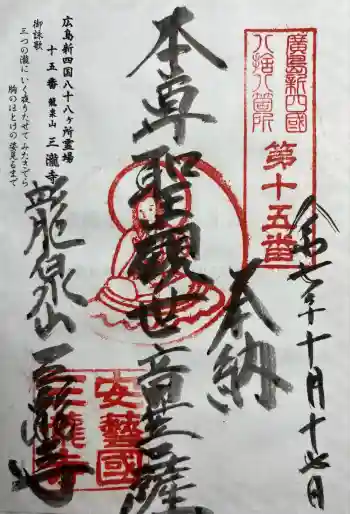 廣島新四國
八拾八箇所
第十五番
令和七年十月十七日
奉納
本尊聖観世音菩薩
龍泉山三瀧寺
安藝國
三瀧寺
広島新四国八十八ヶ所霊場
十五番 龍泉山 三瀧寺
御詠歌
三つの瀧に いく夜りたせて みたきでら
胸のほとけの 姿見るまで